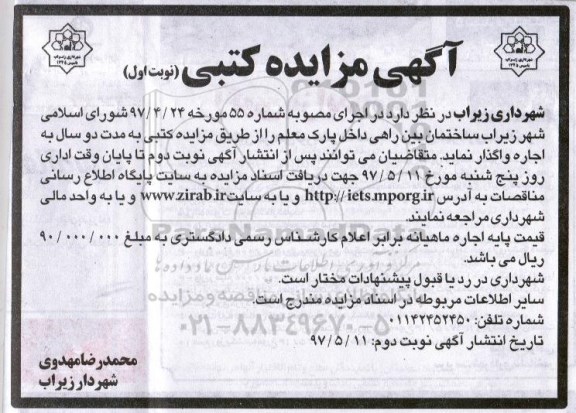 آگهی مزایده کتبی (نوبت اول)
شهرداری زیراب در نظر دارد در اجرای مصوبه شماره ۵۵ مورخه ۹۷/۴/۲۴ شورای اسلامی
شهر زیراب ساختمان بین راهی داخل پارک معلم را از طریق مزایده کتبی به مدت دو سال به
اجاره واگذار نماید. متقاضیان می توانند پس از انتشار آگهی نوبت دوم تا پایان وقت اداری
روز پنج شنبه مورخ ۹۷/۵/۱۱ جهت دریافت اسناد مزایده به سایت پایگاه اطلاع رسانی
مناقصات به آدرس http://iets.mporg.ir و یا به سایت www.zirab.ir و یا به واحد مالی
شهرداری مراجعه نمایند.
قیمت پایه اجاره ماهیانه برابر اعلام کارشناس رسمی دادگستری به مبلغ ۹۰/۰۰۰/۰۰۰
ریال می باشد.
شهرداری در رد یا قبول پیشنهادات مختار است.
سایر اطلاعات مربوطه در اسناد مزایده مندرج است.
شماره تلفن: ۰۱۱۴۲۴۵۲۴۵۰
تاریخ انتشار آگهی نوبت دوم: ۹۷/۵/۱۱
محمدرضا مهدوی
شهردار زیراب
ParsNamadData
۰۲۱-۸۸۳۴۹۶۷۰-۵